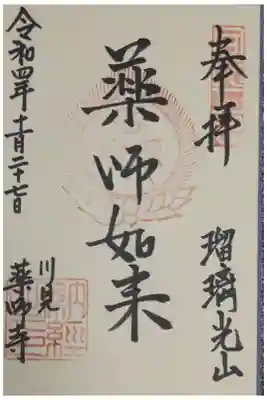 奉拝
瑠璃光山
薬師如来
川見
薬師寺
令和四年十一月二十七日